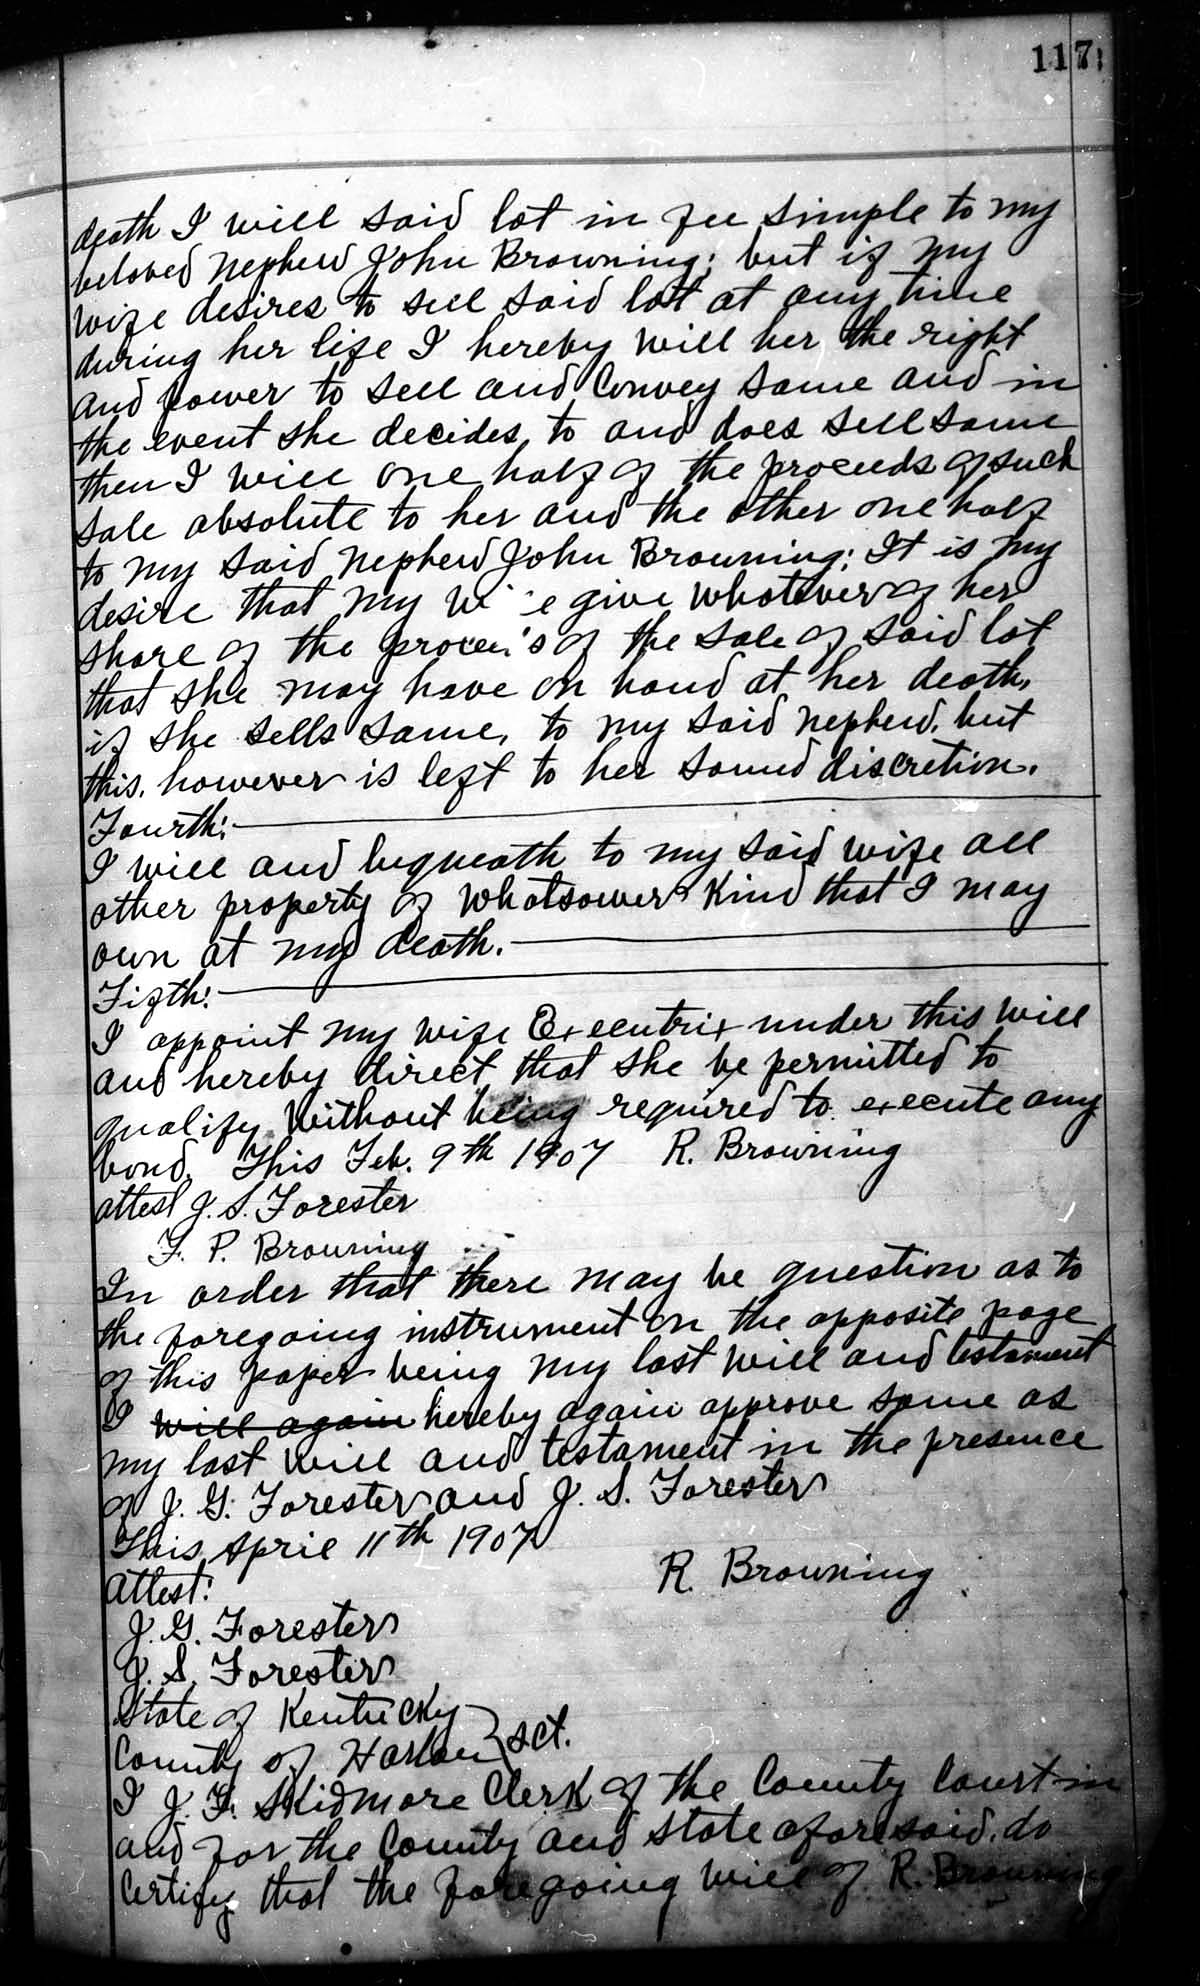 117
death I will said lot in fee simple to my
beloved nephew John Browning; but if my
wife desires to sell said lot at any time
during her life I hereby will her the right
and power to sell and Convey same and in
the event she decides to and does sell same
then I will one half of the proceeds of such
sale absolute to her and the other one half
to my said nephew John Browning; It is my
desire that my wi e give whatever of her
share of the procee s of the sale of said lot
that she may have on hand at her death,
if she sells same, to my said nephew, but
this, however is left to her sound discretion.
Fourth:
I will and bequeath to my said wife all
other property of whatsower Kind that I may
own at my death.
Fifth:
I appoint my wife Executrix under this will
and hereby direct that she be permitted to
qualify without being required to execute any
bond. This Feb. 9th 1907 R. Browning
attest J. S. Forester
F. P. Browning
In order that there may be question as to
the foregoing instrument on the opposite page
of this paper being my last will and testament
I will again hereby again approve same as
my last will and testament in the presence
of J. G. Forester and J. S. Forester
This April 11th 1907
R. Browning
attest:
J. G. Forester
J. S. Forester
State of Kentucky
County of Harlan } sct.
I J. F. Skidmore Clerk of the County Court in
and for the County and State aforesaid, do
Certify that the foregoing will of R. Browning